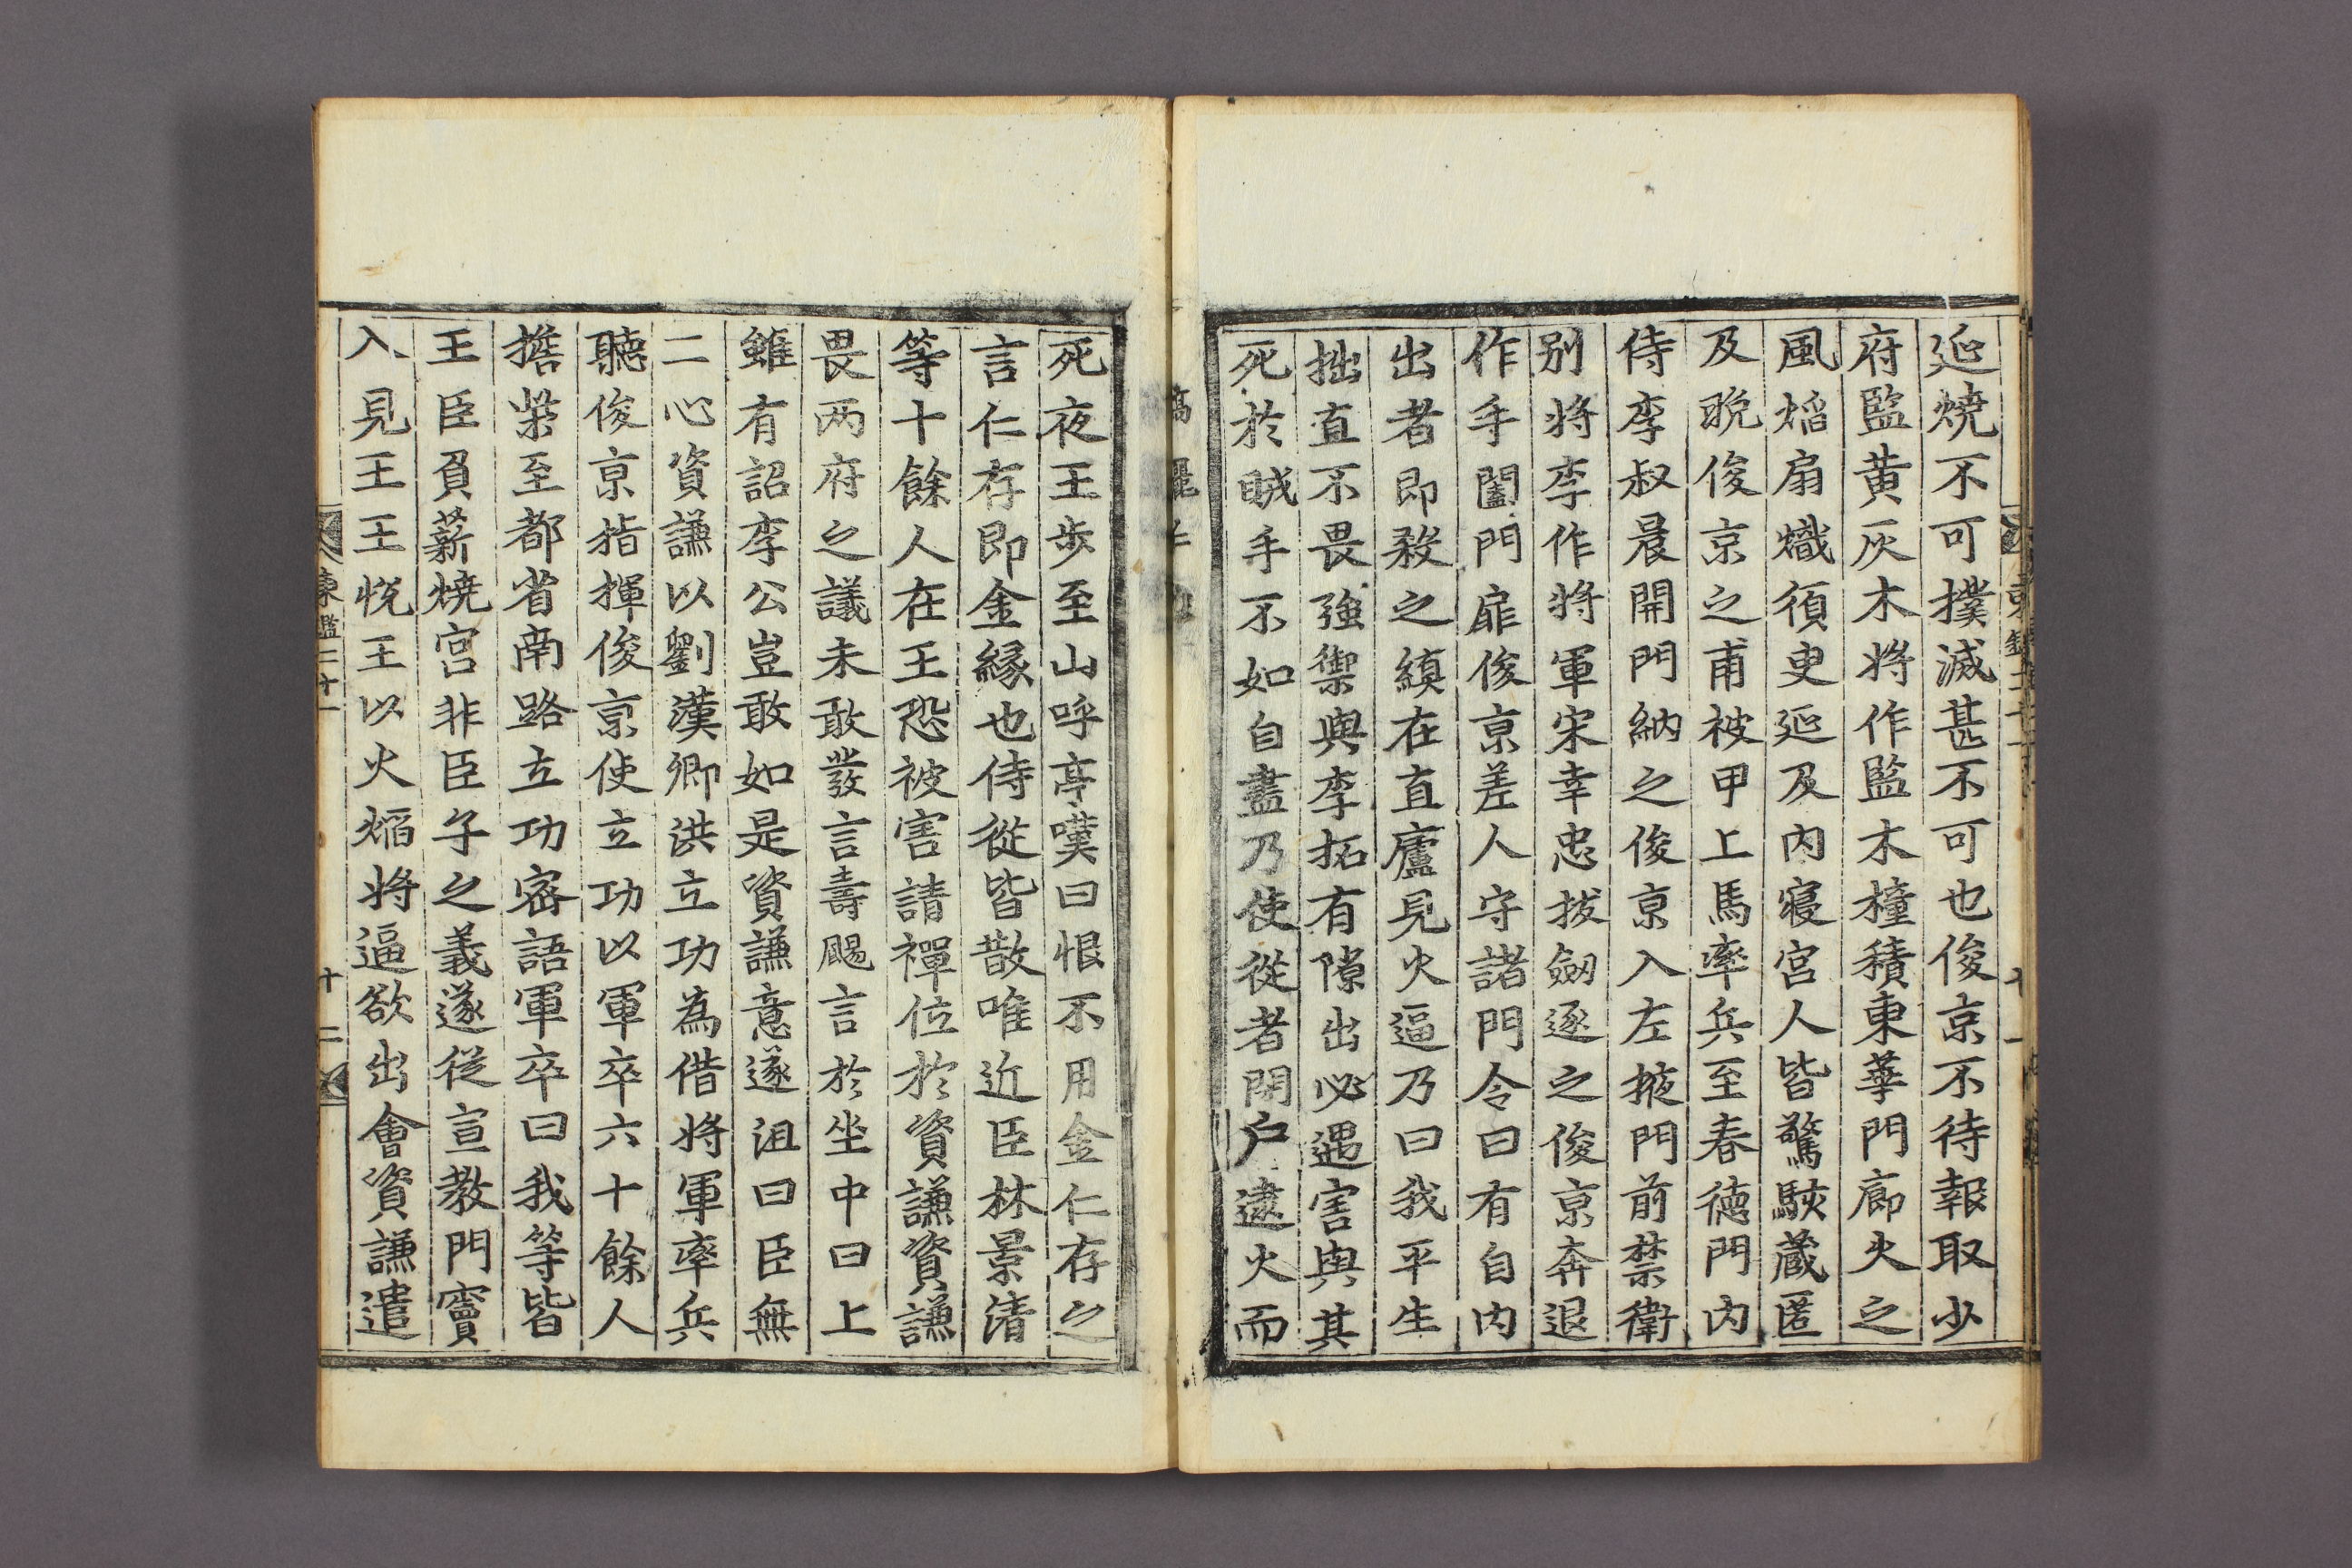 延燒不可撲滅甚不可也俊京不待報取少
府監黃灰木將作監木橦積東華門廊火之
風焰扇熾須叟延及內寢宮人皆驚駭蔵匿
及晩俊京之甫被甲上馬率兵至春德門內
侍李叔晨開門納之俊京入左掖門前禁衛
別將李作將軍宋幸忠拔劒逐之俊京奔退
作手闔門扉俊京差人守諸門令曰有自內
出者即殺之縝在直廬見火逼乃曰我平生
拙直不畏強禦與李拓有隙出必遇害與其
死於賊手不如自盡乃使從者閉户逮火而
死夜王步至山呼亭嘆曰恨不用金仁存之
言仁存即金緣也侍從皆散唯近臣林景清
等十餘人在王恐被害請禪位於資謙資謙
畏两府之議未敢發言壽颺言於坐中曰上
雖有詔李公豈敢如是資謙意遂沮曰臣無
二心資謙以劉漢卿洪立功為借將軍率兵
聽俊京指揮俊京使立功以軍卒六十餘人
擔柴至都省南路立功密語軍卒曰我等皆
王臣負薪燒宮非臣子之義遂從宣教門竇
入見王王悅王以火焰將逼欲出會資謙遣
東鑑二十一
十二